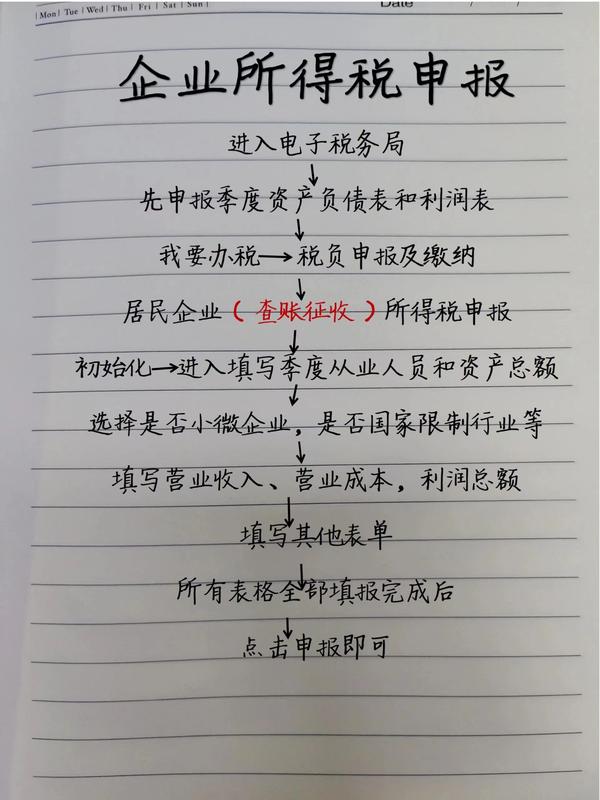 Mon | Tue | Wed | Thu | Fri | Sat | Sun |
Date / /
企业所得税申报
进入电子税务局
↓
先申报季度资产负债表和利润表
↓
我要办税→税负申报及缴纳
↓
居民企业(查账征收)所得税申报
↓
初始化→进入填写季度从业人员和资产总额
↓
选择是否小微企业,是否国家限制行业等
↓
填写营业收入、营业成本,利润总额
↓
填写其他表单
↓
所有表格全部填报完成后
↓
点击申报即可